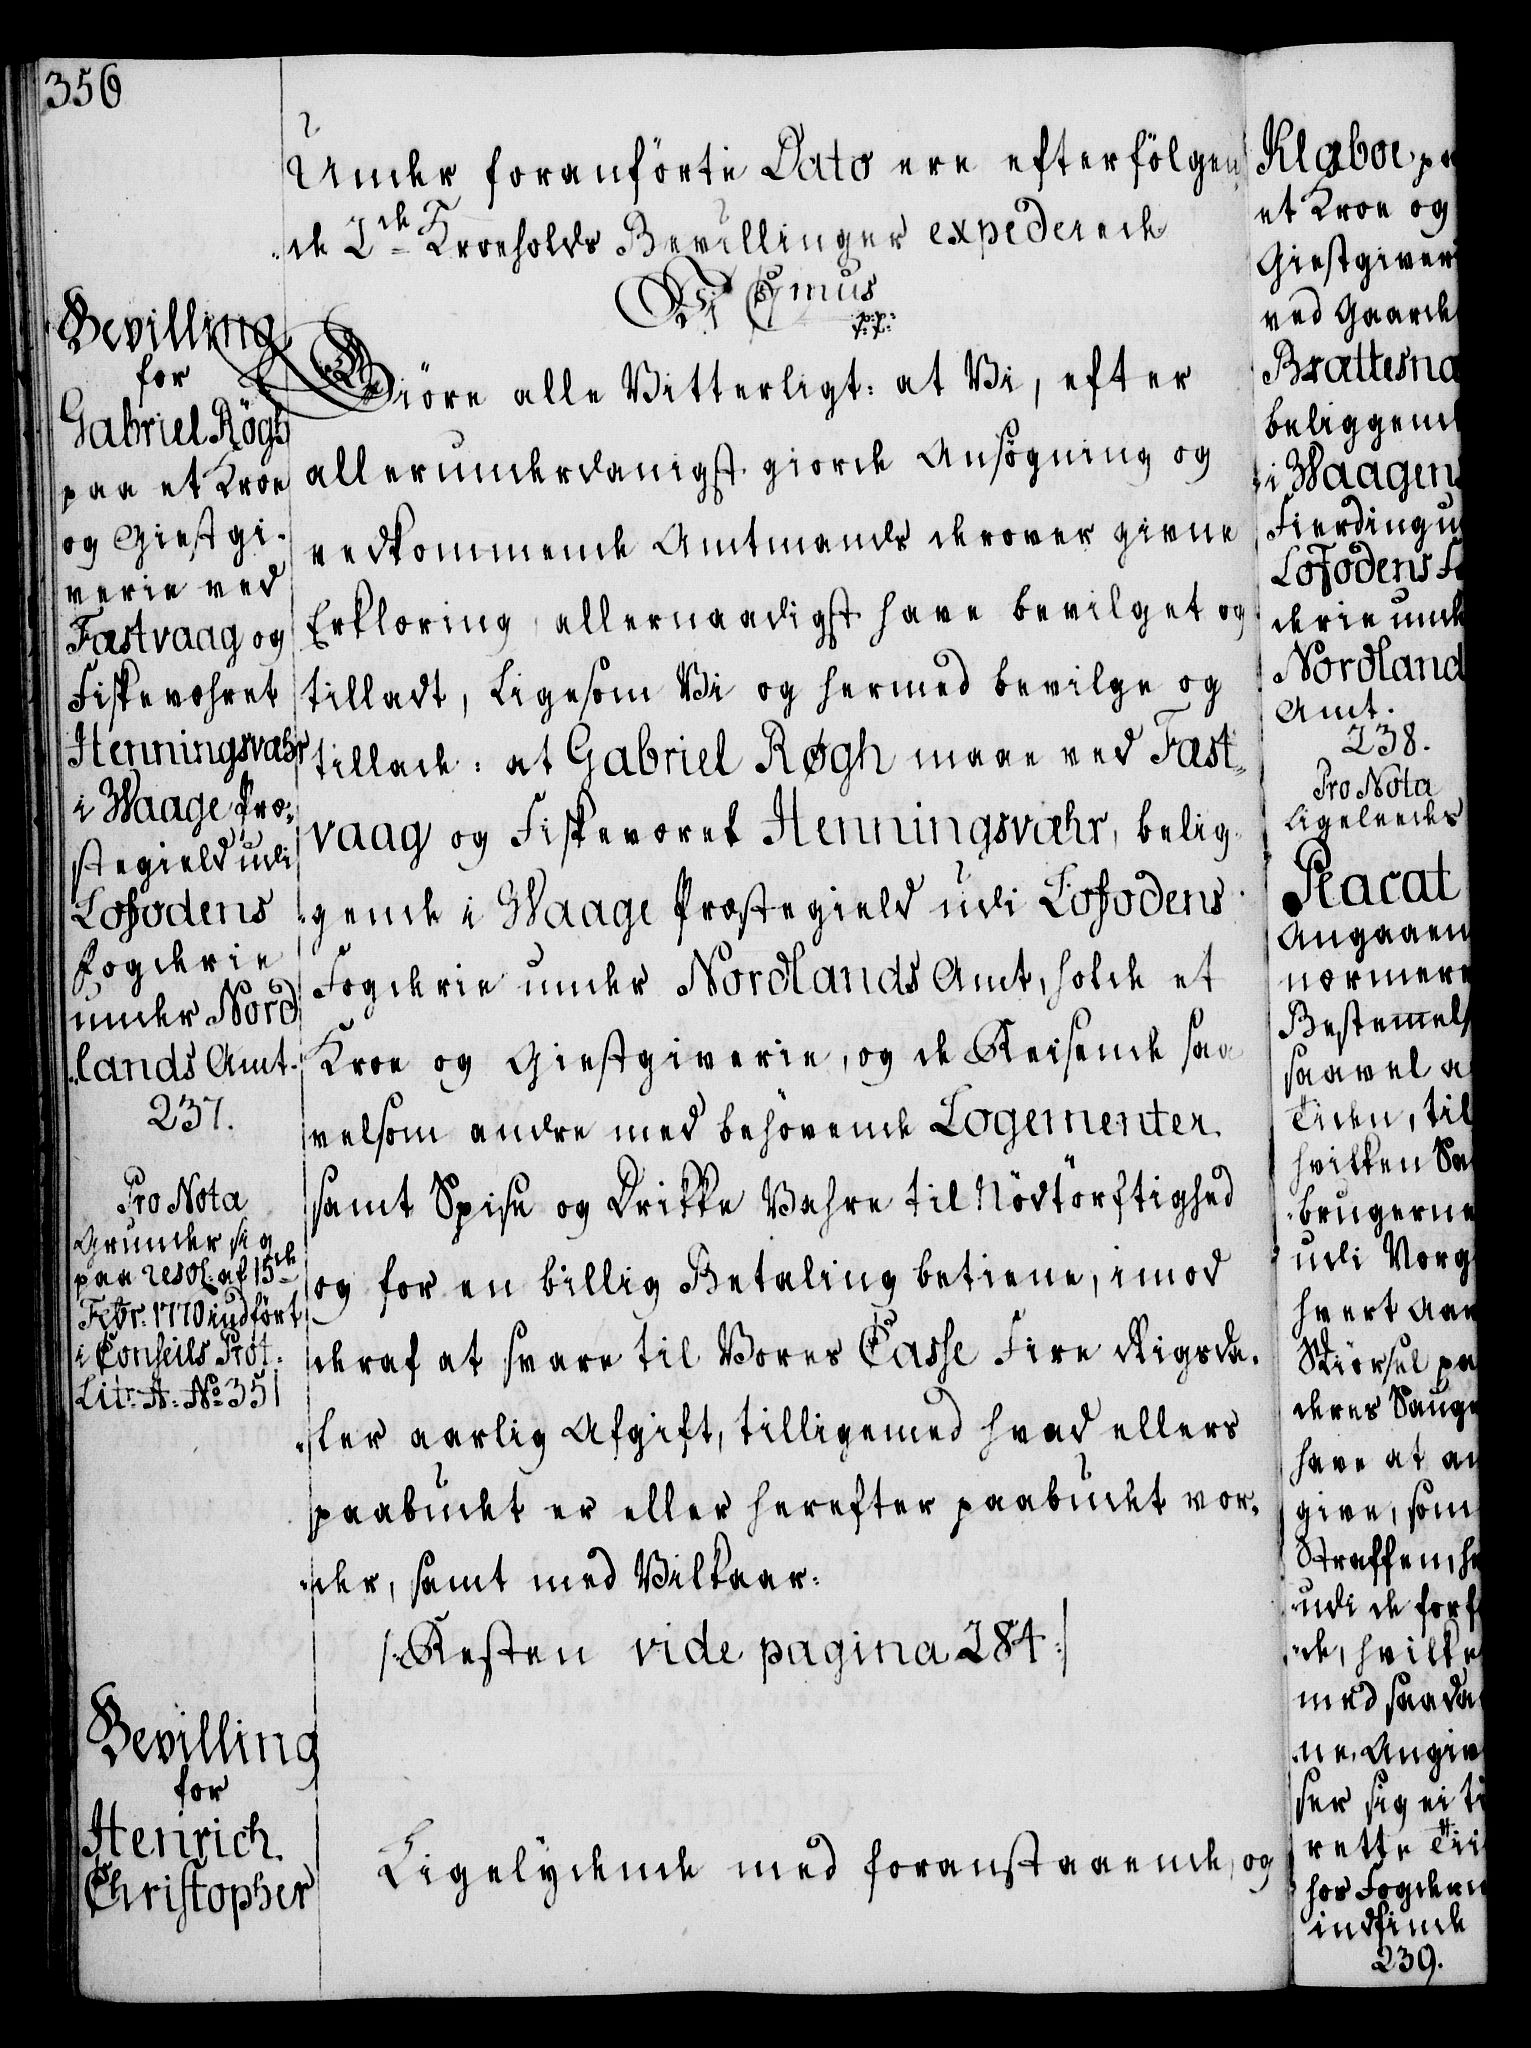 356
Under foranförte Dato ere efterfölgen
de 2de Kroeholds Bevillinger expederede
Vi C 7mus
p: p:
t: t:
Bevilling
for
Gabriel Røgh
paa et Kroe
og Giestgi-
verie ved
Fæstvaag og
Fiskevæhret
Henningsvæhr
i Waage Præ-
stegield udi
Lofodens
Fogderie
under Nord
lands Amt.
237.
Pro Nota
Grunder sig
paa resol: af 15de
Febr: 1770 indfört
i Conseils Prot:
Litr: A: No 351
Giöre alle Vitterligt: at Vi, efter
allerunderdanigst giorde Ansøgning og
vedkommende Amtmands derover givne
Erklæring, allernaadigst have bevilget og
tilladt, Ligesom Vi og hermed bevilge og
tillade: at Gabriel Røgh maae ved Fæst-
vaag og Fiskeværet Henningsvæhr, belig-
gende i Waage Præstegield udi Lofodens
Fogderie under Nordlands Amt, holde et
Kroe og Giestgiverie, og de Reisende saa
velsom andre med behövende Logementer
samt Spise og Drikke Vahre til Nödtörftighed
og for en billig Betaling betiene, imod
deraf at svare til Vores Casse Fire Rigsda-
ler aarlig Afgift, tilligemed hvad ellers
paabudet er eller herefter paabudet vor-
der, samt med Vilkaar:
/: Resten vide pagina 284 :/
Bevilling
for
Henrich
Christopher
Ligelydende med foranstaaende, og
Klæboe pa
et Kroe og
Giestgiver
ved Gaarde
Brattesna
beliggend
i Waagen
Fierding u
Lofodens F
derie unde
Nordland
Amt.
238.
Pro Nota
Ligeledes
Placat
Angaaen
nærmere
Bestemmels
saavel a
Tiden, til
hvilken Sa
brugerne
udi Norg
hvert Aar
Skiörsel pa
deres Sauge
have at an
give, som
Straffen, he
udi de forf
de, hvilke
med saada
ne Angiv
ser sig ei ti
rette Tii
hos Fogden
indfinde
239.